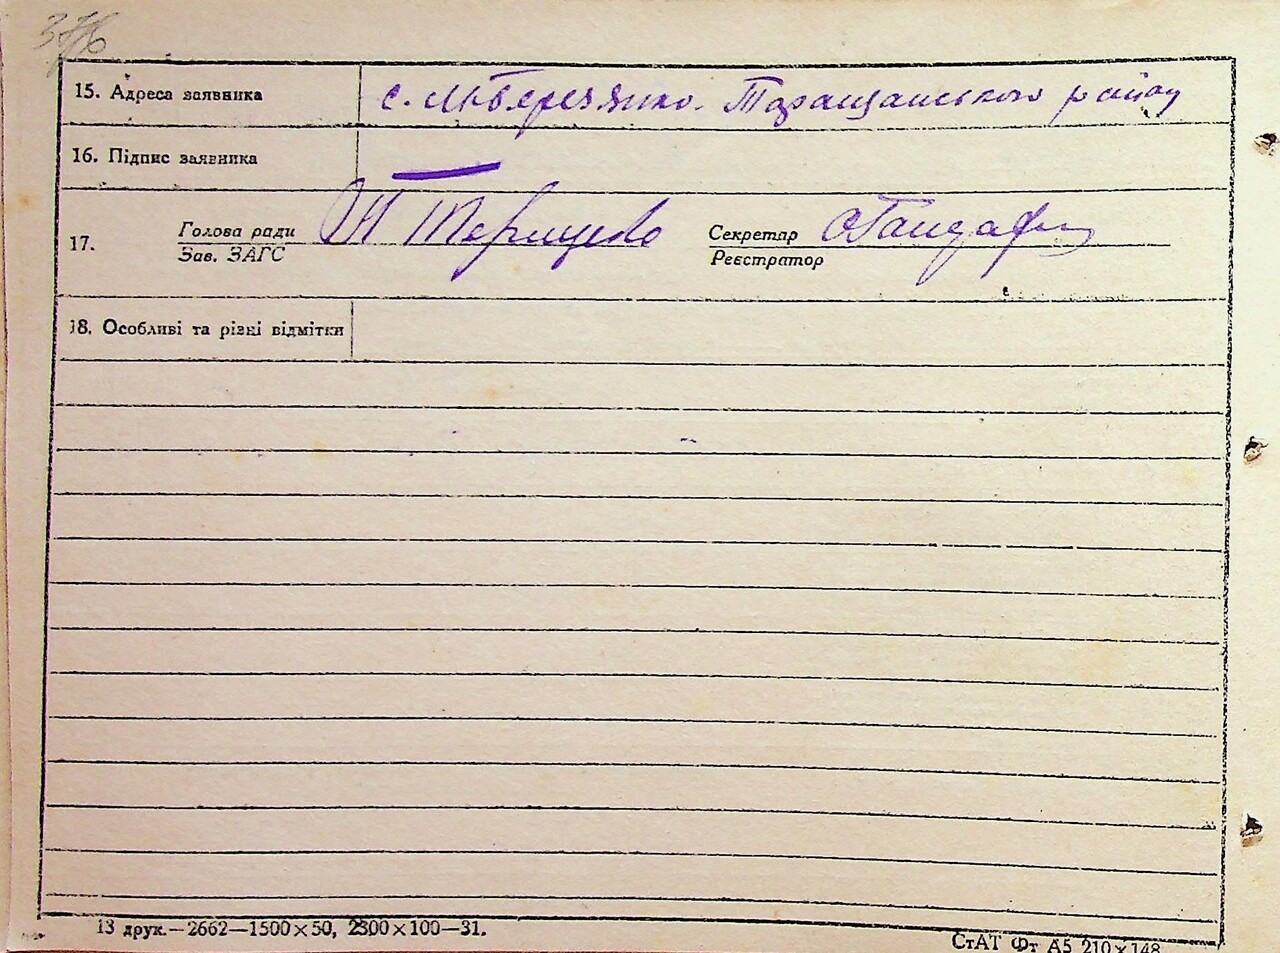 376
15. Адреса заявника с. Лаберезянко. Таращанського району
16. Підпис заявника
17. Голова ради Секретар
Зав. ЗАГС Реєстратор
18. Особливі та різні відмітки
13 друк.—2662—1500×50, 2300×100—31.
СтАТ Фт А5 210×148